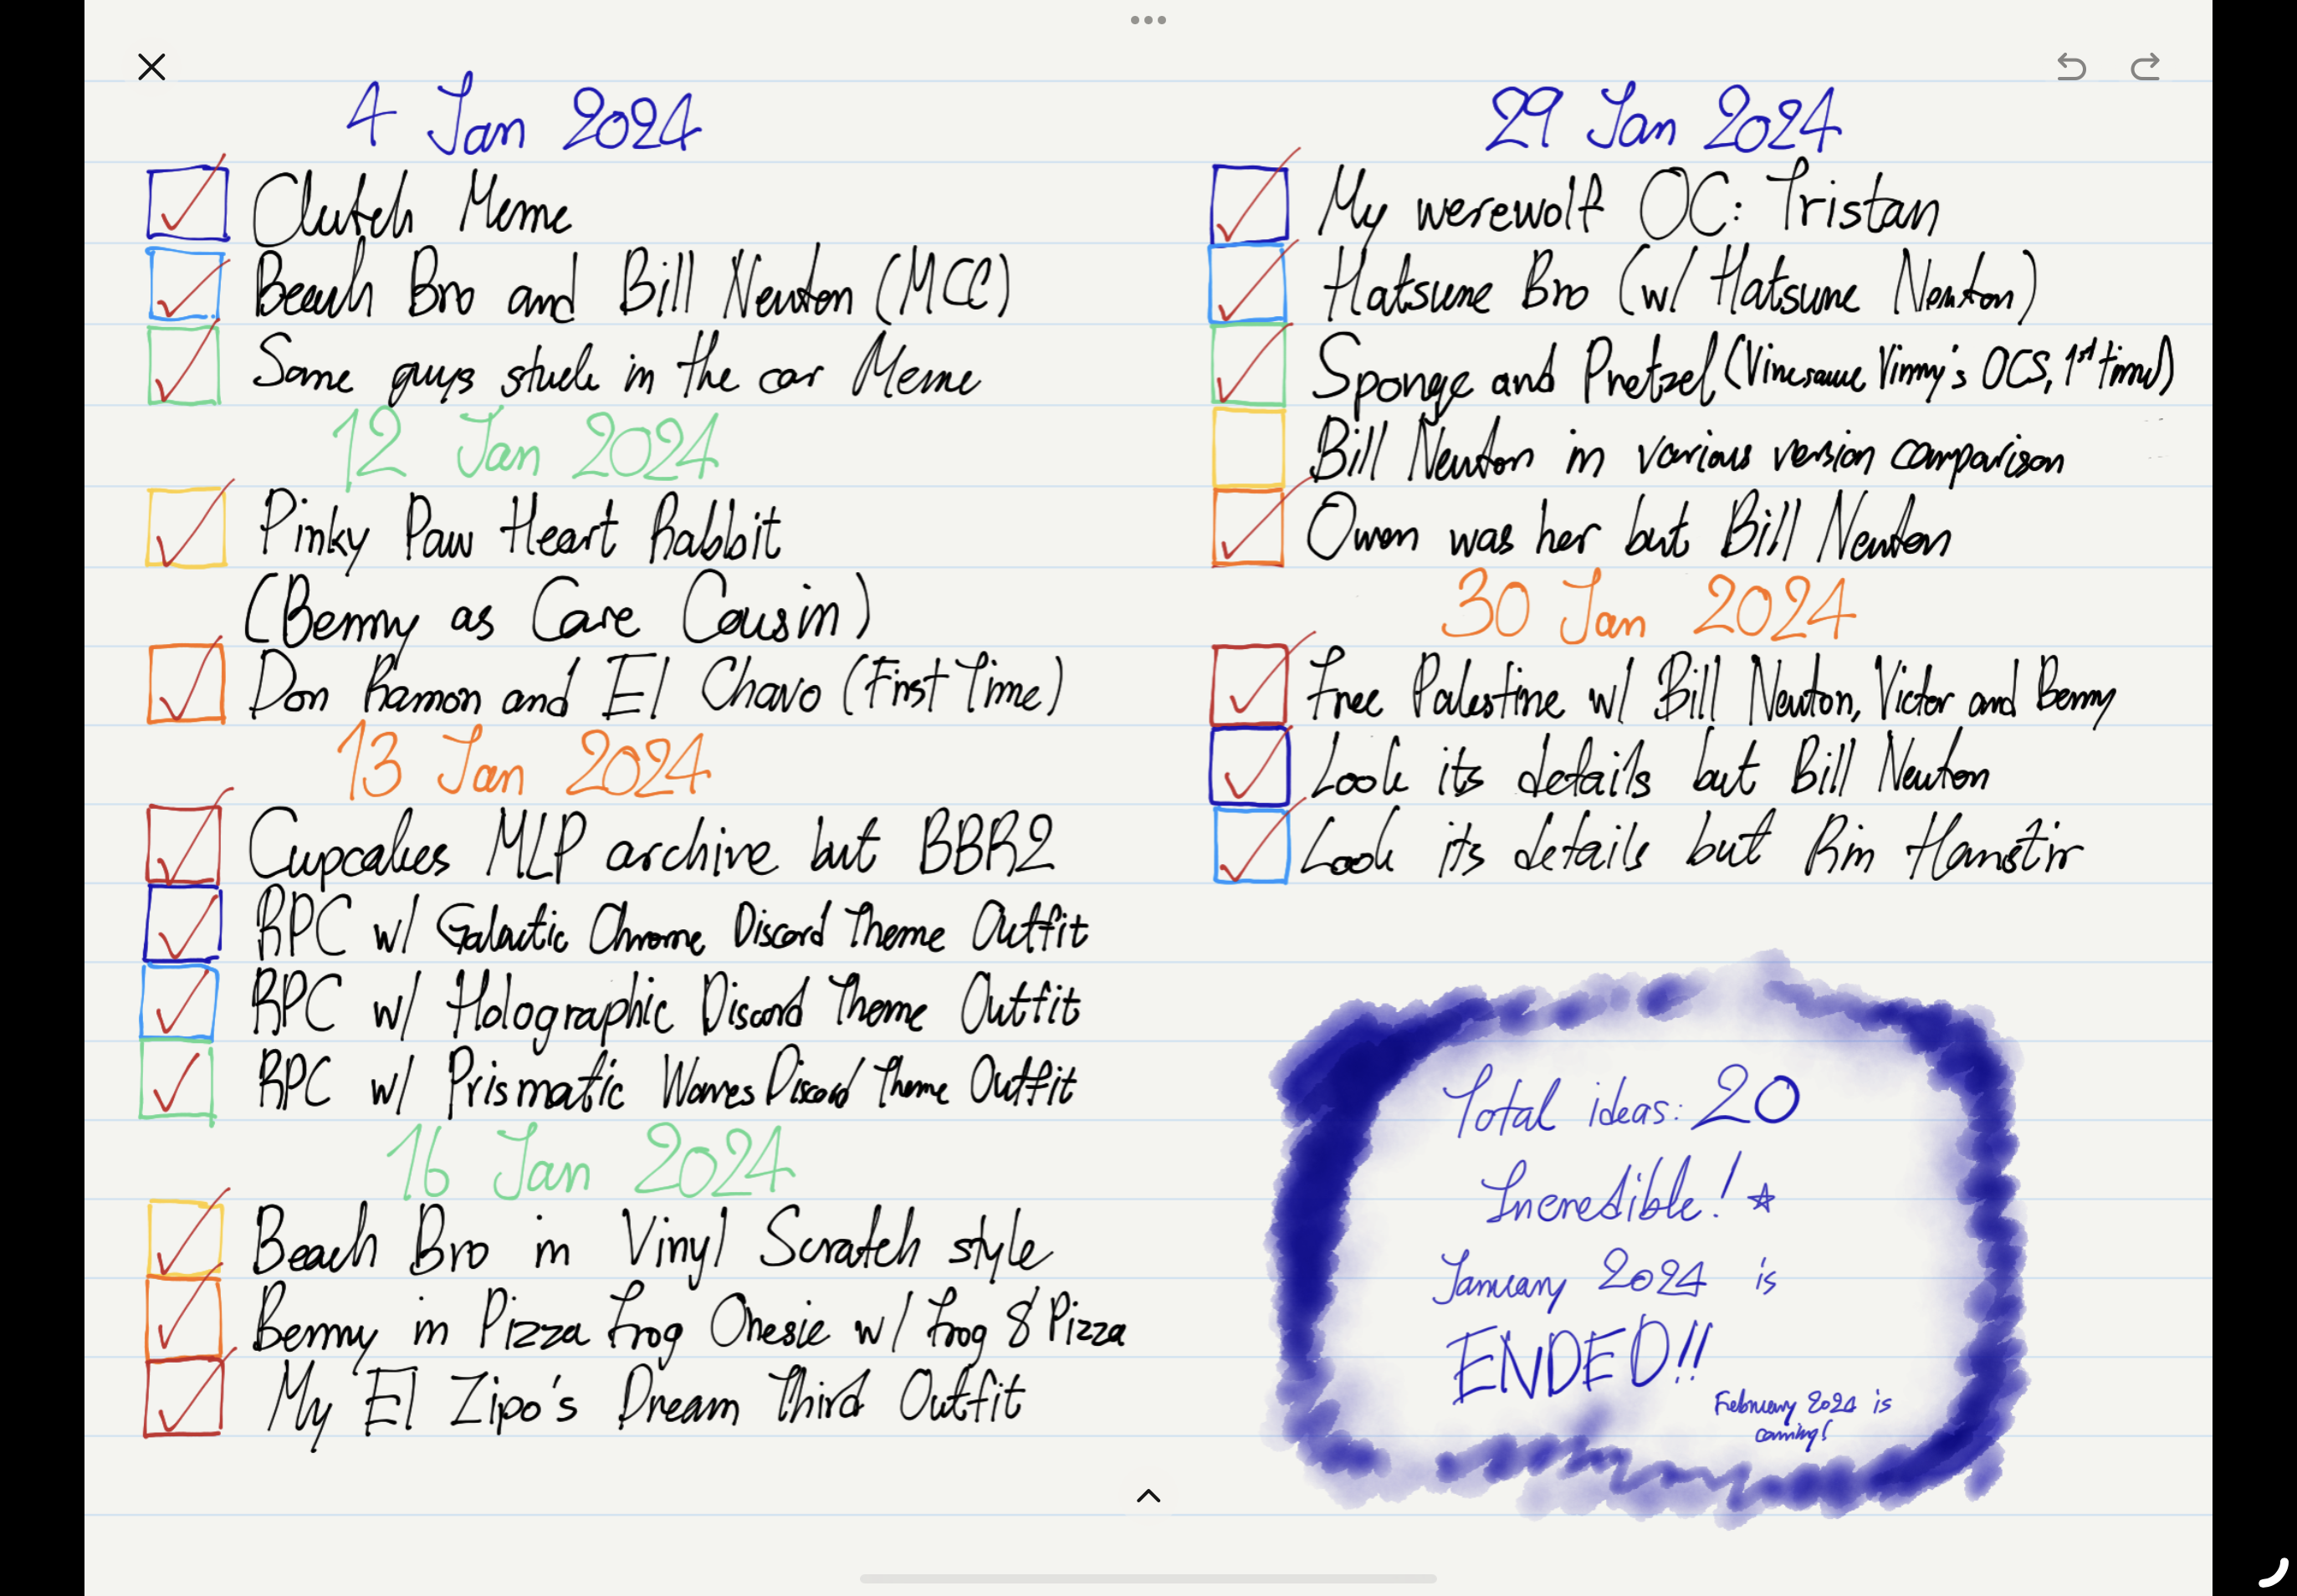 4 Jan 2024
Clutch Meme
Beach Bro and Bill Newton (MCC)
Some guys stuck in the car Meme
12 Jan 2024
Pinky Paw Heart Rabbit
(Benny as Care Cousin)
Don Ramon and El Chavo (First Time)
13 Jan 2024
Cupcakes MLP archive but BBR2
RPC w/ Galactic Chrome Discord Theme Outfit
RPC w/ Holographic Discord Theme Outfit
RPC w/ Prismatic Waves Discord Theme Outfit
16 Jan 2024
Beach Bro in Vinyl Scratch style
Benny in Pizza Frog Onesie w/ Frog & Pizza
My El Zipo's Dream Third Outfit
29 Jan 2024
My werewolf OC: Tristan
Hatsune Bro (w/ Hatsune Newton)
Sponge and Pretzel (Vinesauce Vinny's OCS, 1st time)
Bill Newton in various version comparison
Owen was her but Bill Newton
30 Jan 2024
Free Palestine w/ Bill Newton, Victor and Benny
Look its details but Bill Newton
Look its details but Rin Hanstir
Total ideas: 20
Incredible! ☆
January 2024 is
ENDED!!
February 2024 is
coming!